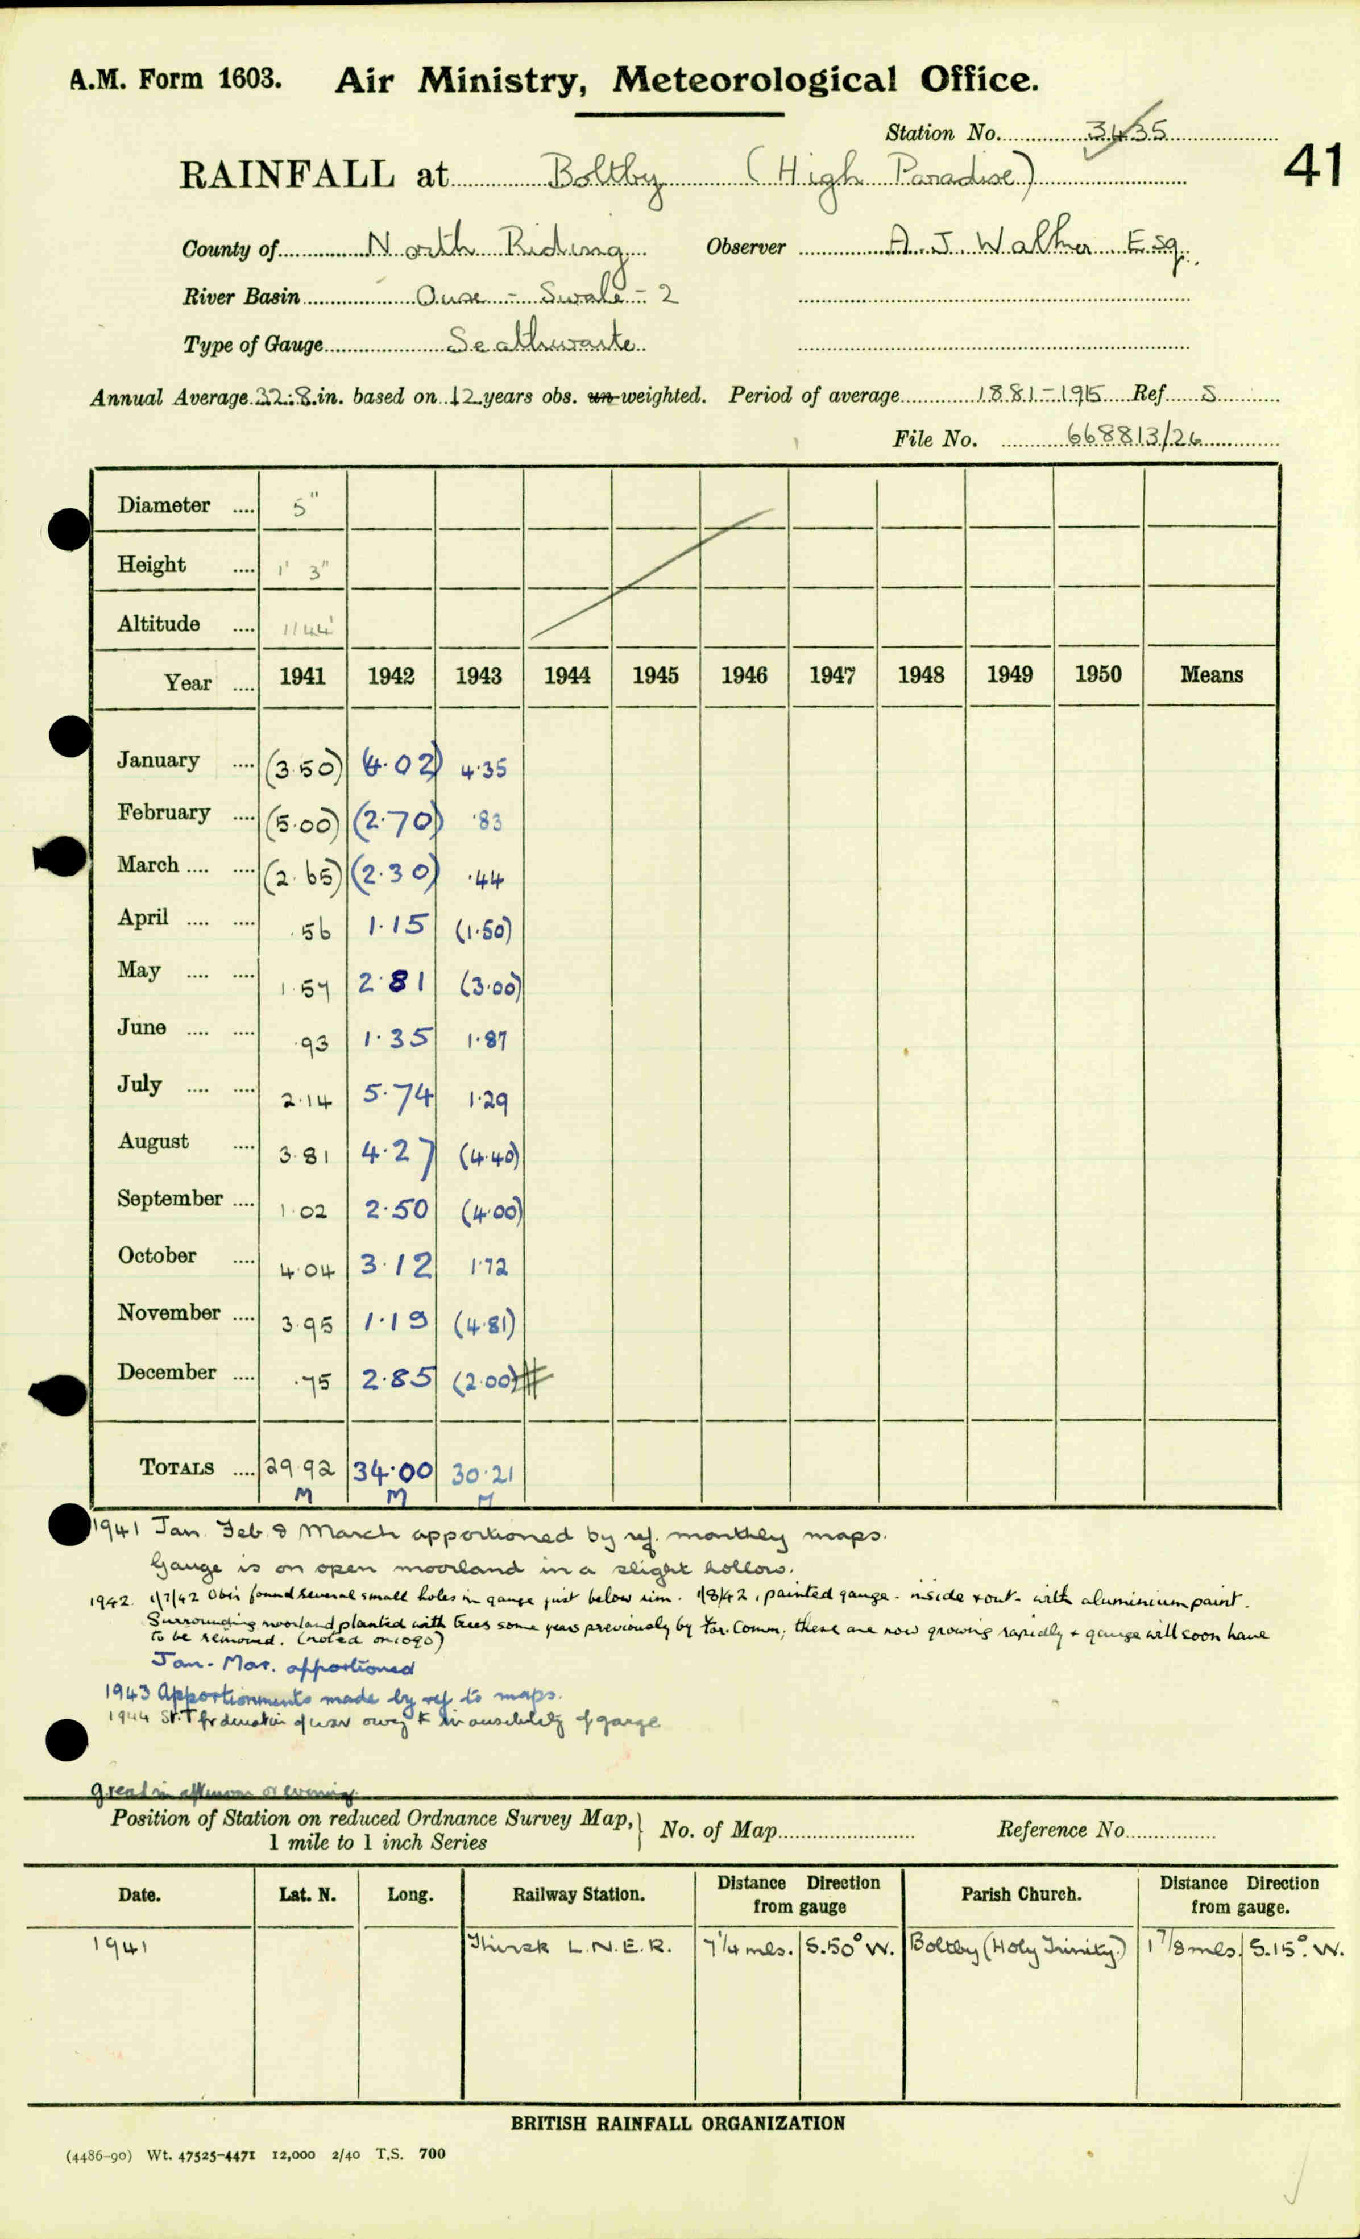 A.M. Form 1603. Air Ministry, Meteorological Office.
Station No. 3435
41
RAINFALL at Boltby (High Paradise)
County of North Riding Observer A. J. Walker Esq.
River Basin Ouse - Swale - 2
Type of Gauge Seathwaite
Annual Average 32.8 in. based on 12 years obs. un-weighted. Period of average 1881-1915 Ref S
File No. 668813/26
Diameter .... 5"
Height .... 1' 3"
Altitude .... 1144'
Year .... 1941 1942 1943 1944 1945 1946 1947 1948 1949 1950 Means
January .... (3.50) (4.02) 4.35
February .... (5.00) (2.70) .83
March .... .... (2.65) (2.30) .44
April .... .... .56 1.15 (1.50)
May .... .... 1.57 2.81 (3.00)
June .... .... .93 1.35 1.87
July .... .... 2.14 5.74 1.29
August .... 3.81 4.27 (4.40)
September .... 1.02 2.50 (4.00)
October .... 4.04 3.12 1.72
November .... 3.95 1.19 (4.81)
December .... .75 2.85 (2.00) #
TOTALS .... 29.92 34.00 30.21
M M M
1941 Jan. Feb & March apportioned by ref. monthly maps.
Gauge is on open moorland in a slight hollow.
1942. 1/7/42 Obsr found several small holes in gauge just below rim. 1/8/42, painted gauge - inside + out - with aluminium paint.
Surrounding moorland planted with trees some years previously by For. Comm; these are now growing rapidly + gauge will soon have
to be removed. (noted on 1090)
Jan - Mar. apportioned
1943 Apportionments made by ref to maps.
1944 St. T for duration of war owing to inaccessibility of gauge
G read in afternoon or evening.
Position of Station on reduced Ordnance Survey Map, 1 mile to 1 inch Series } No. of Map Reference No.
Date. Lat. N. Long. Railway Station. Distance from gauge Direction Parish Church. Distance from gauge. Direction
1941 Thirsk L.N.E.R. 7 1/4 mls. S.50° W. Boltby (Holy Trinity) 1 7/8 mls. S.15° W.
BRITISH RAINFALL ORGANIZATION
(4486-90) Wt. 47525-4471 12,000 2/40 T.S. 700